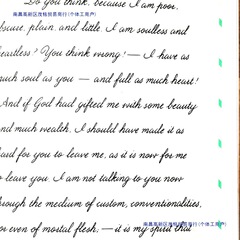 Do you think, because I am poor,
obscure, plain, and little, I am soulless and
heartless? You think wrong! — I have as
much soul as you — and full as much heart!
And if God had gifted me with some beauty
and much wealth, I should have made it as
hard for you to leave me, as it is now for me
to leave you. I am not talking to you now
through the medium of custom, conventionalities,
or even of mortal flesh. — it is my spirit that